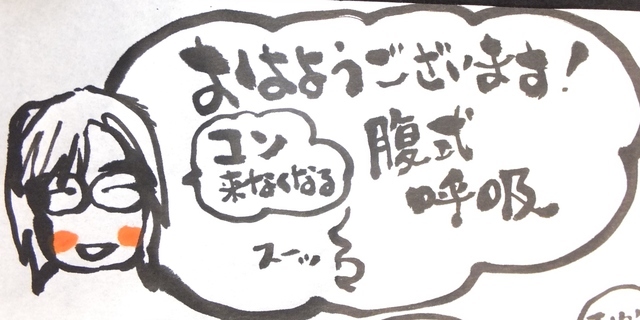 おはようございます！
コン
来なくなる
腹式
呼吸
スーッ